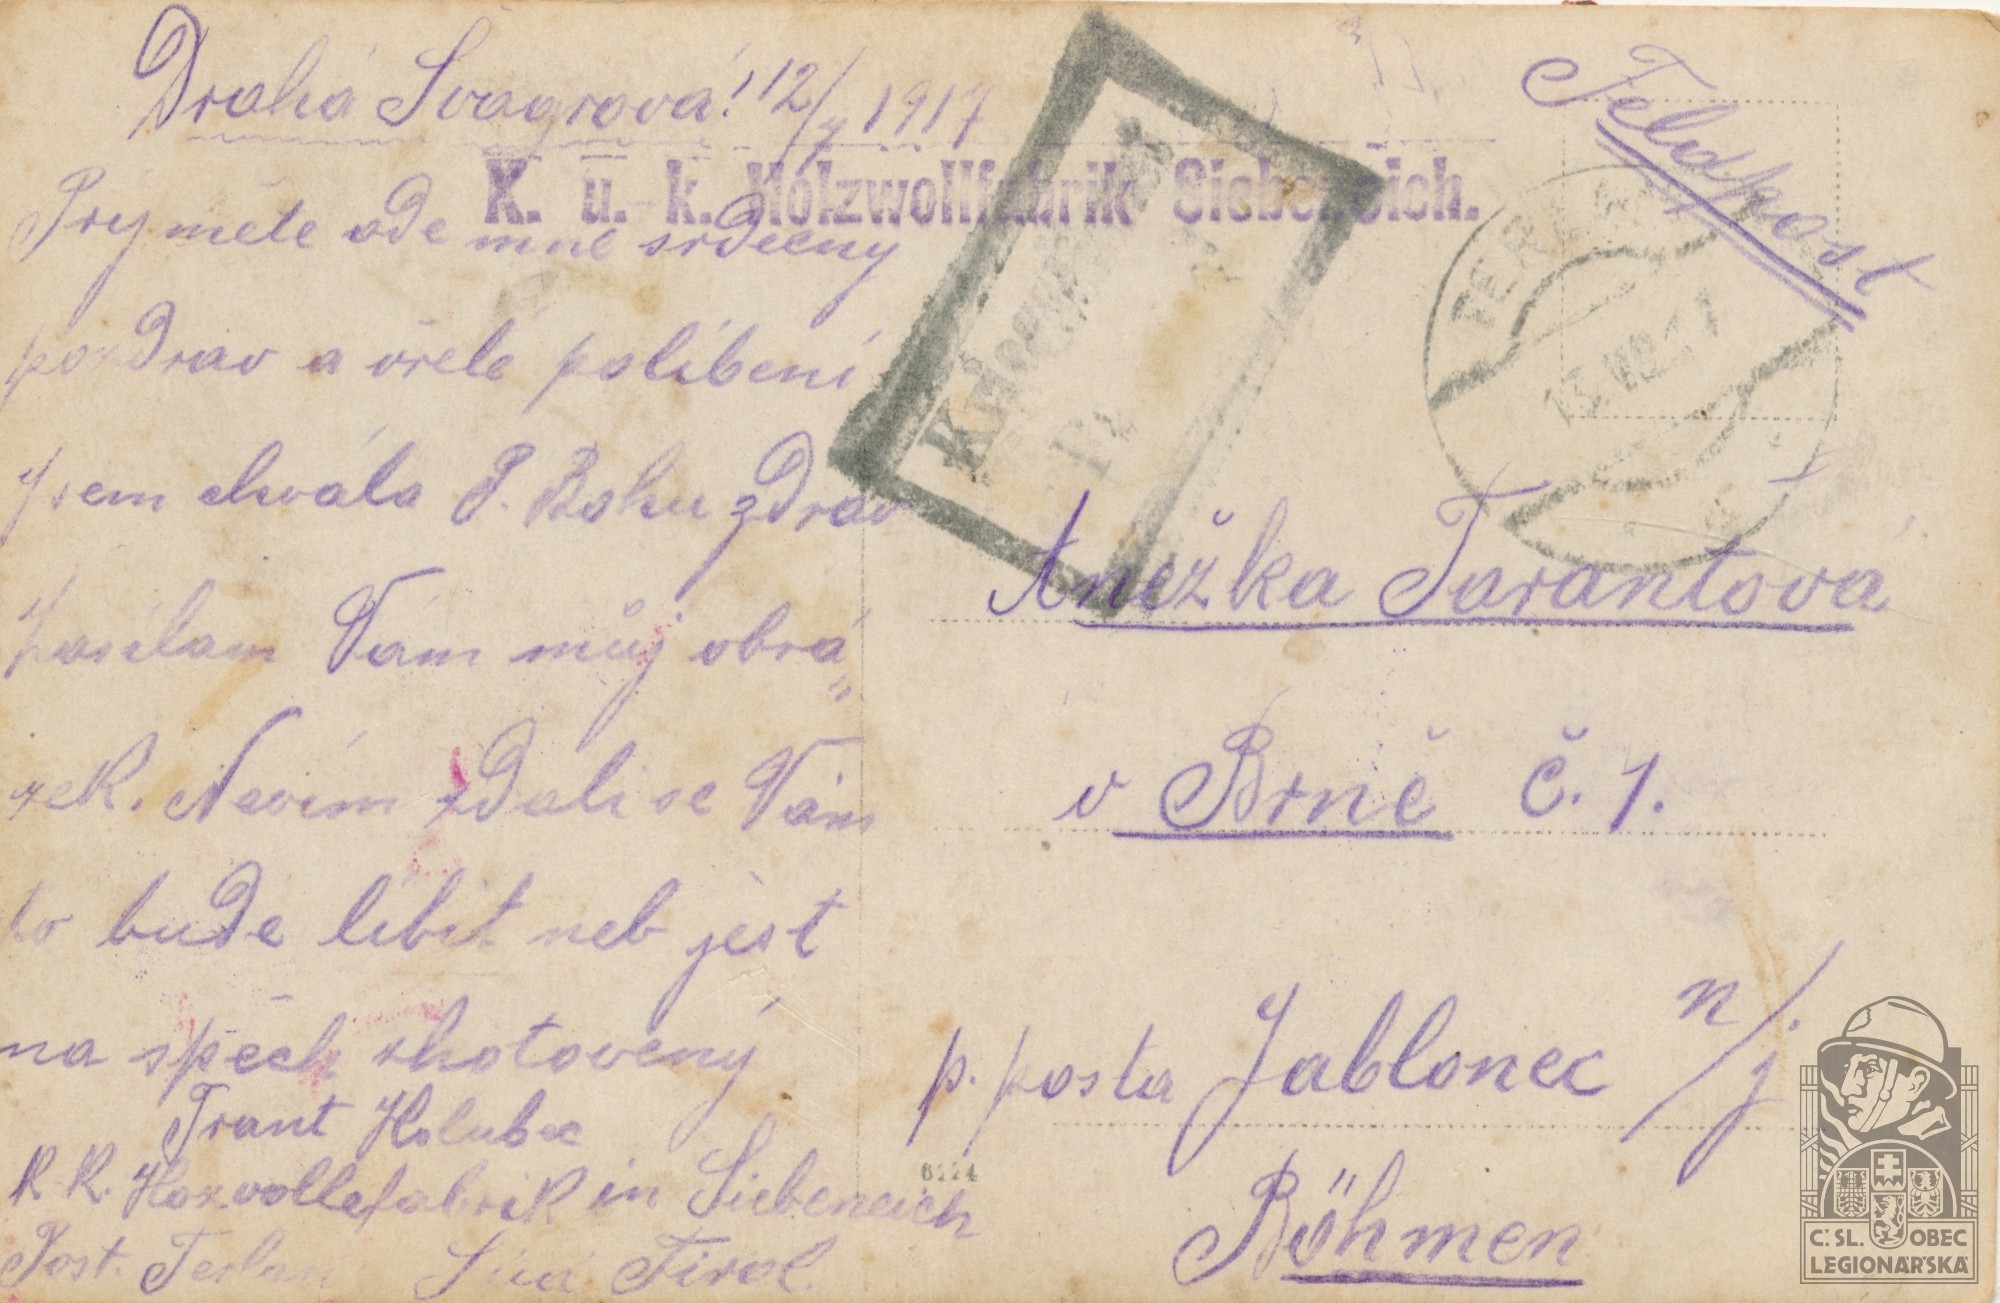 Drahá Švagrová! 12/7 1917
K. u. k. Holzwollfabrik Siebeneich.
Feldpost
Prijmete ode mne srdecny
pozdrav a vřelé políbení
Jsem chvála P. Bohu zdráv
Zasílam Vám můj obrá„
zek. Nevím zdali se Vám
to bude líbit neb jest
na spěch zhotovený
Frant Holubec
K K. Hozvollefabrik in Siebeneich
Post. Terlan Süd Tirol.
13. VII. 17
Anežka Tarantová
v Brně č. 1.
p. posta Jablonec n/j.
Böhmen
6224
Č: SL. OBEC
LEGIONÁŘSKÁ